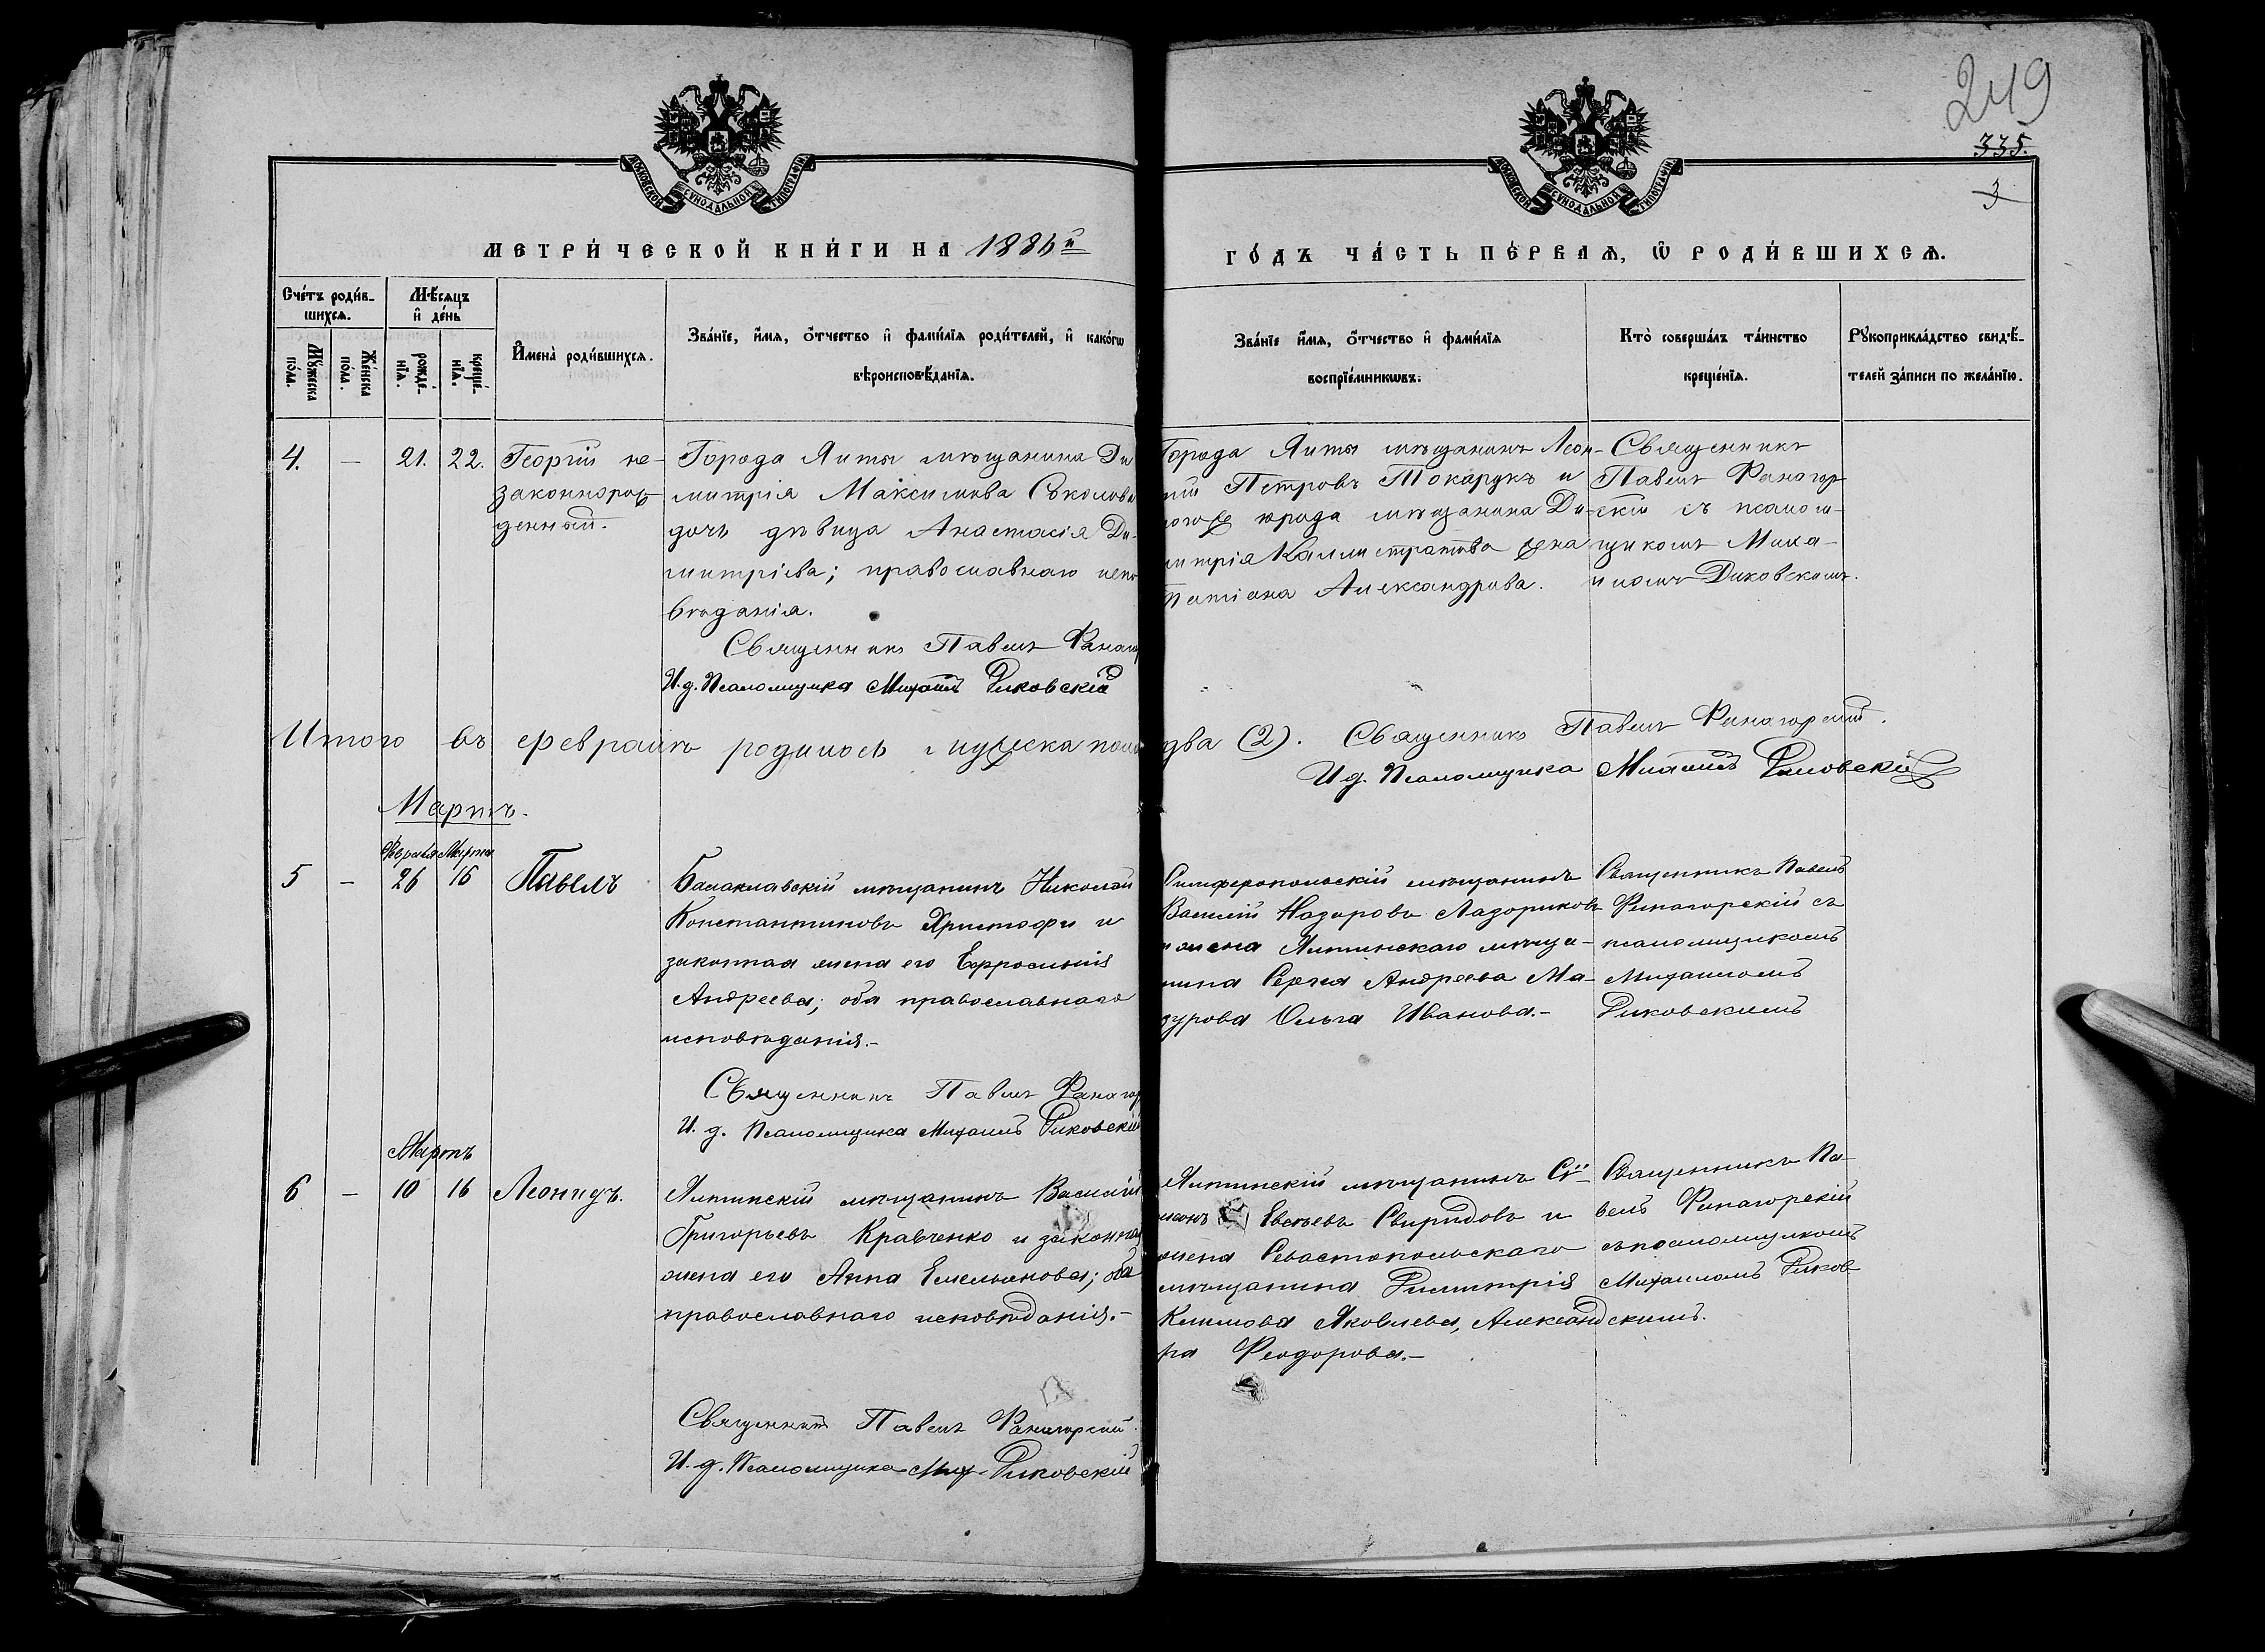 249
335.
3
МОСКОВСКОЙ СѴНОДАЛЬНОЙ ТИПОГРАФІИ
МОСКОВСКОЙ СѴНОДАЛЬНОЙ ТИПОГРАФІИ
МЕТРИ́ЧЕСКОЙ КНИ́ГИ НА 1886й
ГО́ДЪ ЧА́СТЬ ПЕ́РВАѦ, Ѿ РОДИ́ВШИХСѦ.
Счéтъ роди́в-
шихсѧ.
Мꙋ́жеска
по́ла.
Же́нска
по́ла.
Мѣ́сѧцъ
и҆ де́нь
рожде́-
нїѧ.
креще́-
нїѧ.
И҆мена̀ роди́вшихсѧ.
Зва́нїе, и҆́мѧ, ѻ҆́тчество и҆ фами́лїѧ роди́телей, и҆ како́гѡ
вѣроисповѣ́данїѧ.
Зва́нїе и҆́мѧ, ѻ҆́тчество и҆ фами́лїѧ
воспрїе́мникѡвъ.
Кто̀ соверша́лъ та́инство
креще́нїѧ.
Рꙋкоприкла́дство свидѣ́-
телей за́писи по жела́нїю.
4. — 21. 22. Георгій не-
законнорож-
денный.
Города Ялты мѣщанина Ди
митрія Максимова Соколова
дочь дѣвица Анастасія Ди-
митріева; православнаго испо
вѣданія.
Священникъ Павелъ Фанаг
И. д. Псаломщика Михаилъ Диковскій
Города Ялты мѣщанинъ Леон-
тій Петровъ Токарукъ и
того же города мѣщанина Ди-
митрія Каллистратова жена
Татіана Александрова.
Священникъ
Павелъ Фанагор
скій съ псалом-
щикомъ Миха-
иломъ Диковскимъ.
Итого въ февралѣ родилось мужеска пола
два (2). Священникъ Павелъ Фанагорскій.
И д. Псаломщика Михаилъ Диковскій
Мартъ.
Февраля Марта
5 — 26 16 Павелъ
Балаклавскій мѣщанинъ Николай
Константиновъ Христофи и
законная жена его Евфросинія
Андреева; оба православнаго
исповѣданія.-
Священникъ Павелъ Фанагор
И. д. Псаломщика Михаилъ Диковскій
Симферопольскій мѣщанинъ
Василій Назаровъ Лазориковъ
и жена Ялтинскаго мѣща-
нина Сергѣя Андреева Ма-
зурова Ольга Иванова.-
Священникъ Павелъ
Фанагорскій съ
псаломщикомъ
Михаиломъ
Диковскимъ
Мартъ
6 — 10 16 Леонидъ.
Ялтинскій мѣщанинъ Василій
Григорьевъ Кравченко и законная
жена его Анна Емельянова; оба
православнаго исповѣданія.-
Священникъ Павелъ Фанагорскій.
И. д. Псаломщика Мих. Диковскій
Ялтинскій мѣщанинъ Си-
меонъ Евсѣевъ Свиридовъ и
жена Севастопольскаго
мѣщанина Димитрія
Климова Яковлева, Александ
ра Феодорова.-
Священникъ Па-
велъ Фанагорскій
съ псаломщикомъ
Михаиломъ Диков
скимъ.